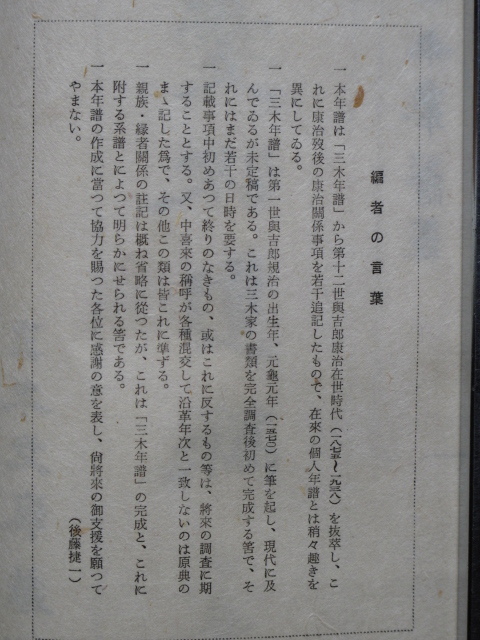 編者の言葉
一 本年譜は「三木年譜」から第十二世與吉郎康治在世時代(一八七五~一九三八)を抜萃し、こ
れに康治歿後の康治關係事項を若干追記したもので、在來の個人年譜とは稍々趣きを
異にしてゐる。
一 「三木年譜」は第一世與吉郎規治の出生年、元龜元年(一五七〇)に筆を起し、現代に及
んでゐるが未定稿である。これは三木家の書類を完全調査後初めて完成する筈で、そ
れにはまだ若干の日時を要する。
一 記載事項中初めあつて終りのなきもの、或はこれに反するもの等は、將來の調査に期
することとする。又、中喜來の稱呼が各種混交して沿革年次と一致しないのは原典の
まゝ記した爲で、その他この類は皆これに準ずる。
一 親族・縁者關係の註記は概ね省略に從つたが、これは「三木年譜」の完成と、これに
附する系譜とによつて明らかにせられる筈である。
一 本年譜の作成に當つて協力を賜つた各位に感謝の意を表し、尙將來の御支援を願つて
やまない。
(後藤捷一)